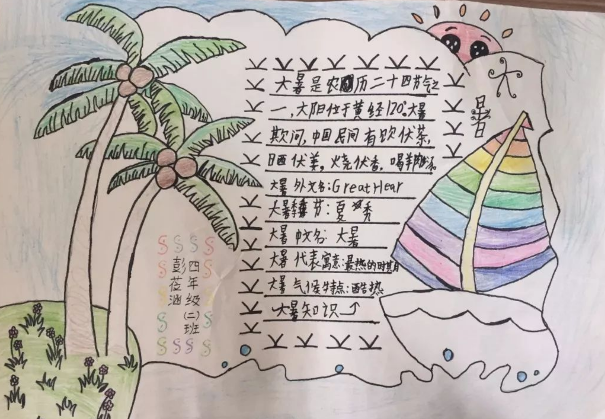 大暑
大暑是农历二十四节气之
一,大阳位于黄经120°。大暑
欺间,中国民间有饮伏茶,
晒伏姜,烧伏香,喝羊肉汤
大暑外文名:Great Hear
大暑季节:夏季
大暑中文名:大暑
大暑代表寓意:最热的时期
大暑气候特点:酷热
大暑知识
四年级(二)班
彭莅涵